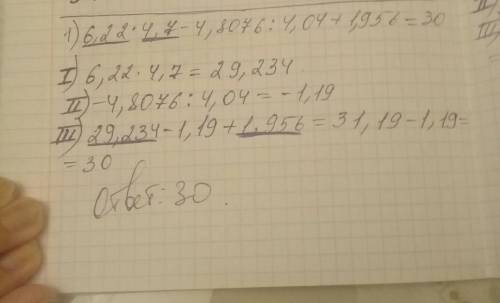 1) 6,22·4,7-4,8076:4,04+1,956=30
I) 6,22·4,7=29,234
II) -4,8076:4,04=-1,19
III) 29,234-1,19+1.956=31,19-1,19=
=30
Ответ: 30.